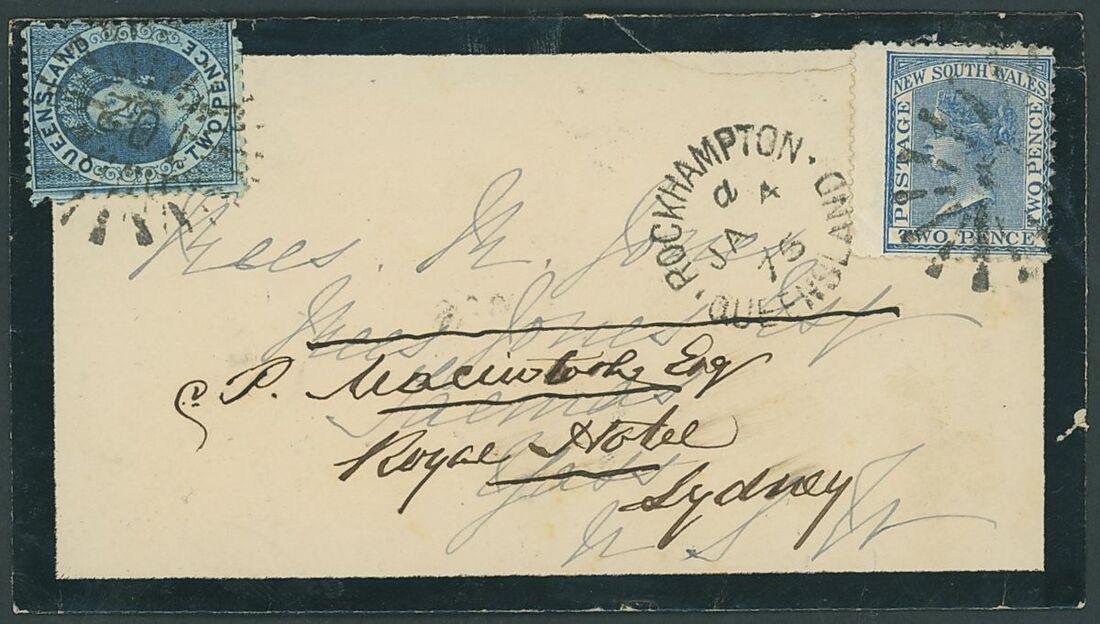 QUEENSLAND TWO PENCE
NEW SOUTH WALES
POSTAGE
TWO PENCE
TWO PENCE
ROCKHAMPTON
A
JA
75
QUEENSLAND
M. Jones
Jones Esq
P. Macintosh Esq
Royal Hotel
Yass
Sydney
N S W